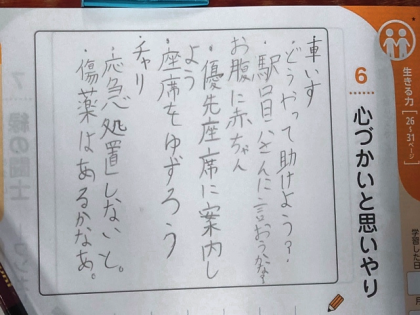 生きる力
[26~31ページ]
6 心づかいと思いやり
学習した日
車いす
・どうやって助けよう?
・駅員さんに言おうかな
お腹に赤ちゃん
・優先座席に案内し
よう
・座席をゆずろう
チャリ
・応急処置しないと。
・傷薬はあるかなあ。
7